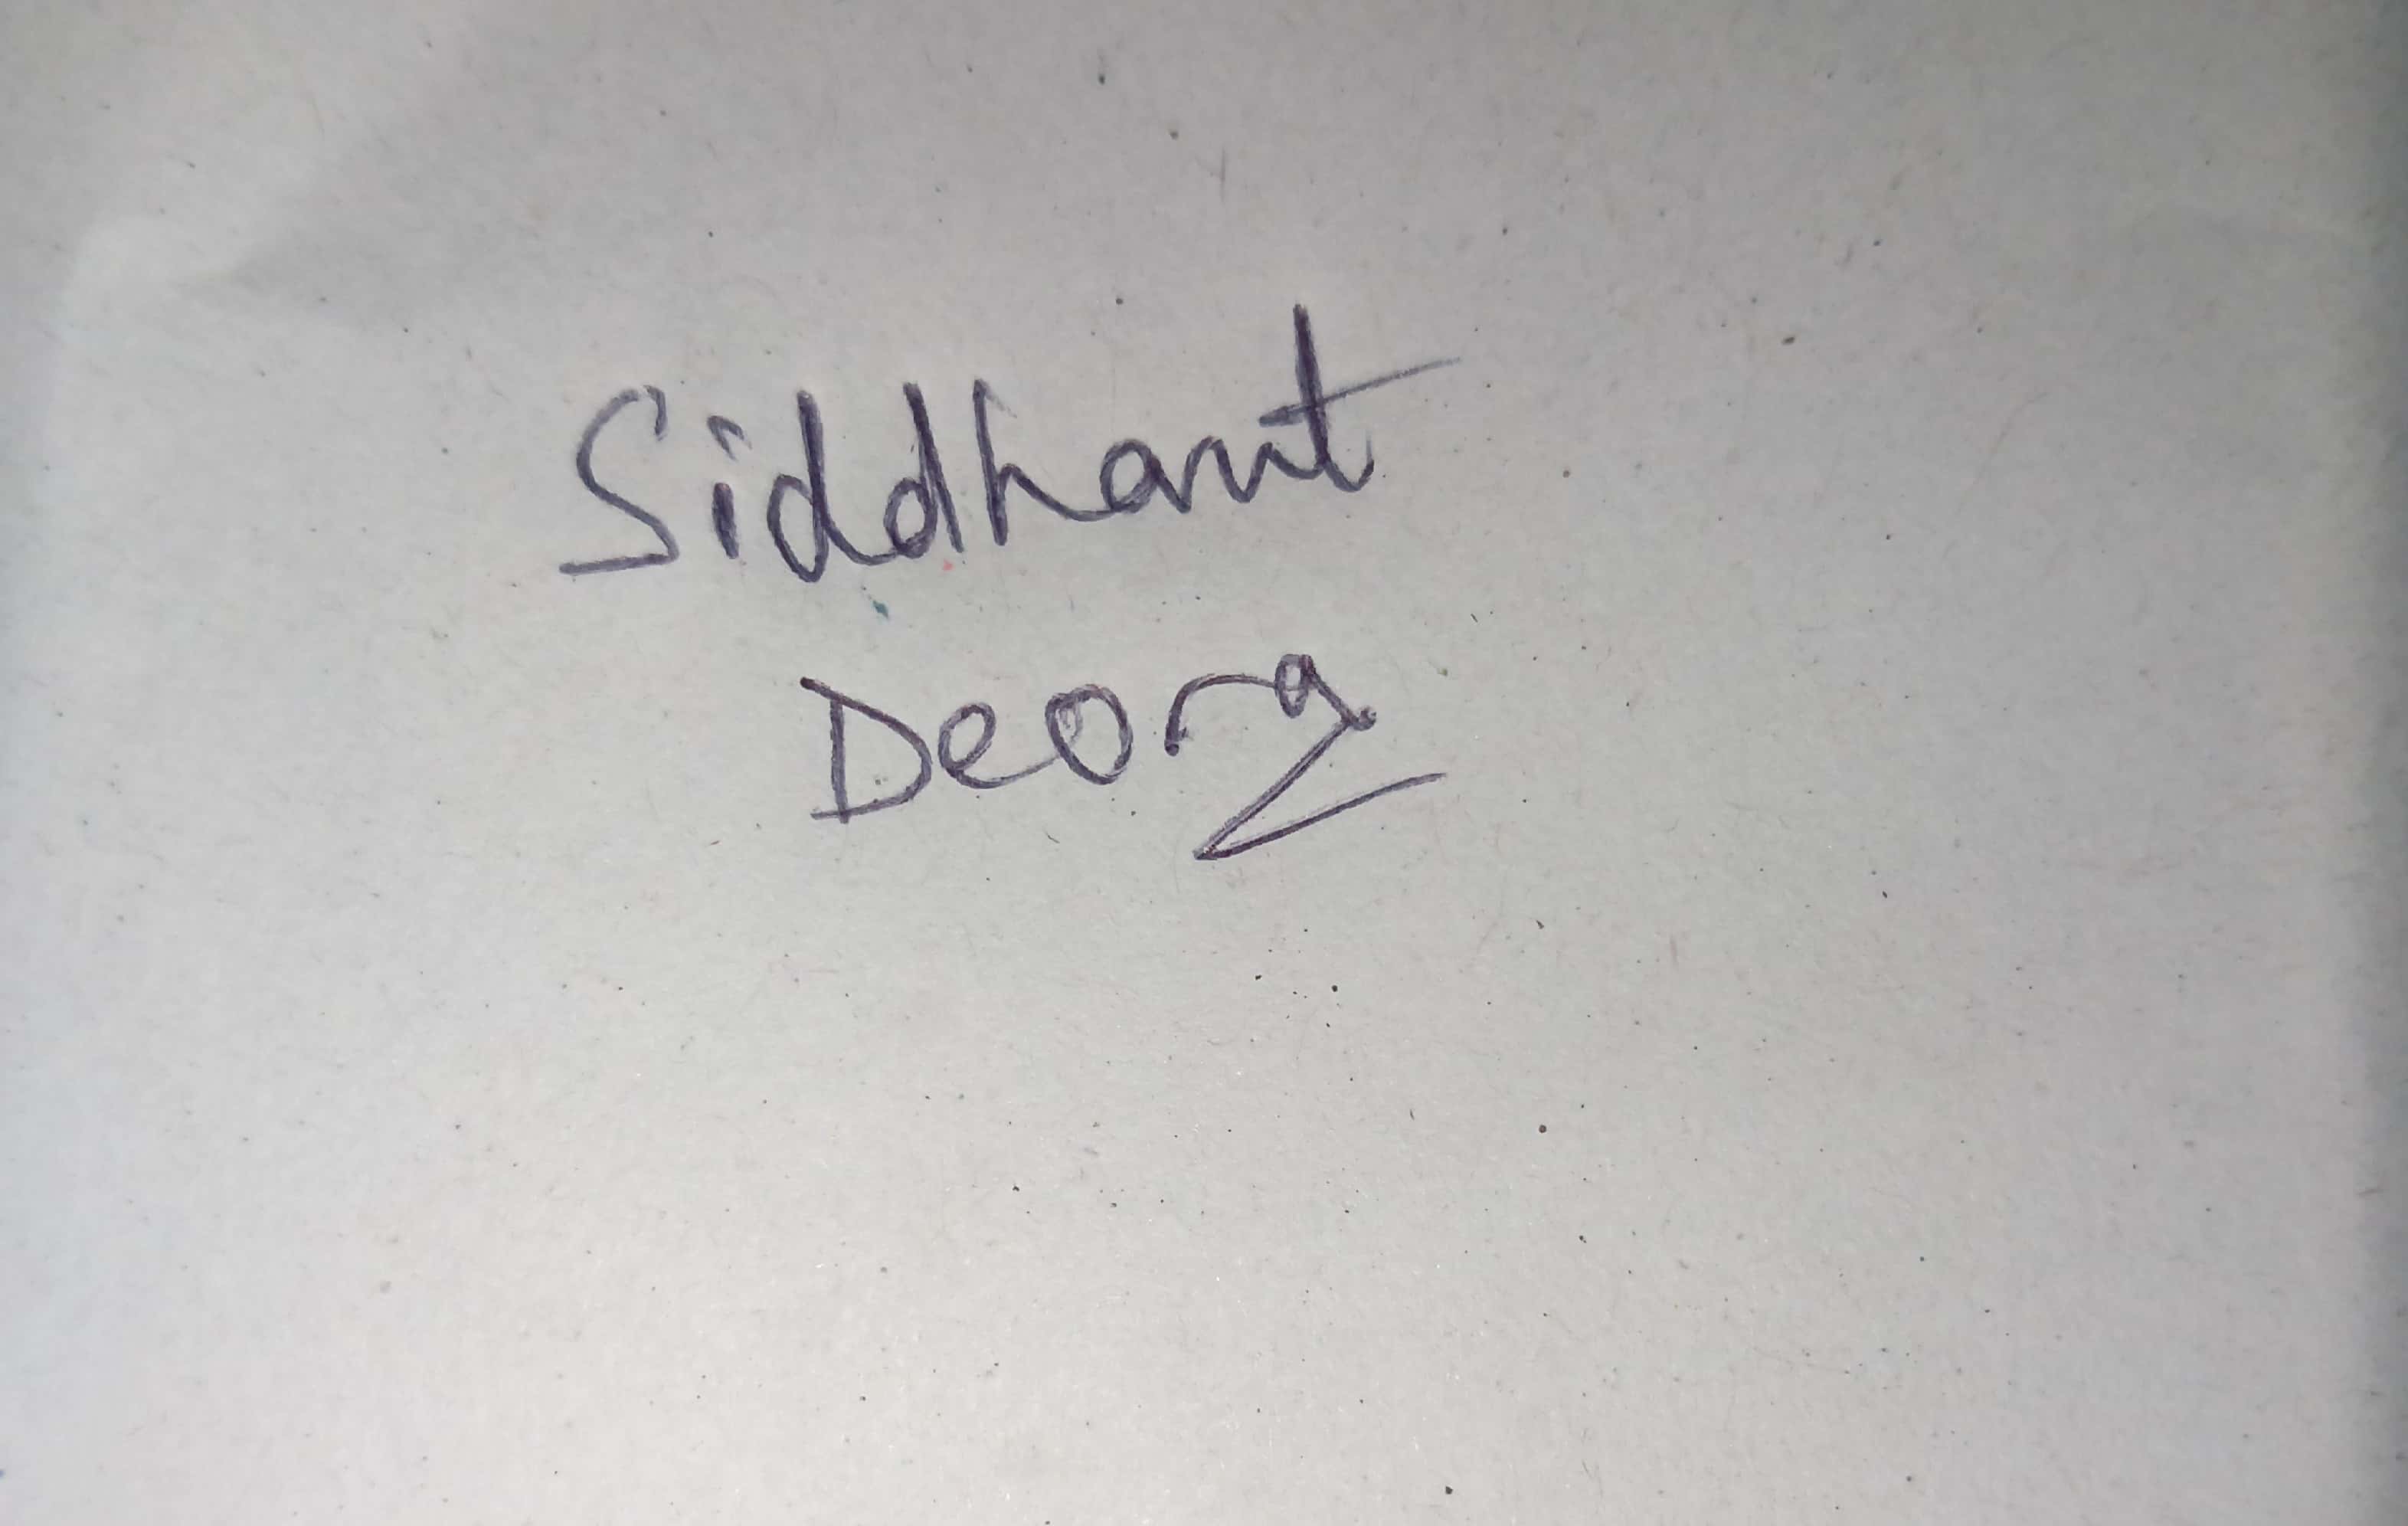 Siddhant
Deora